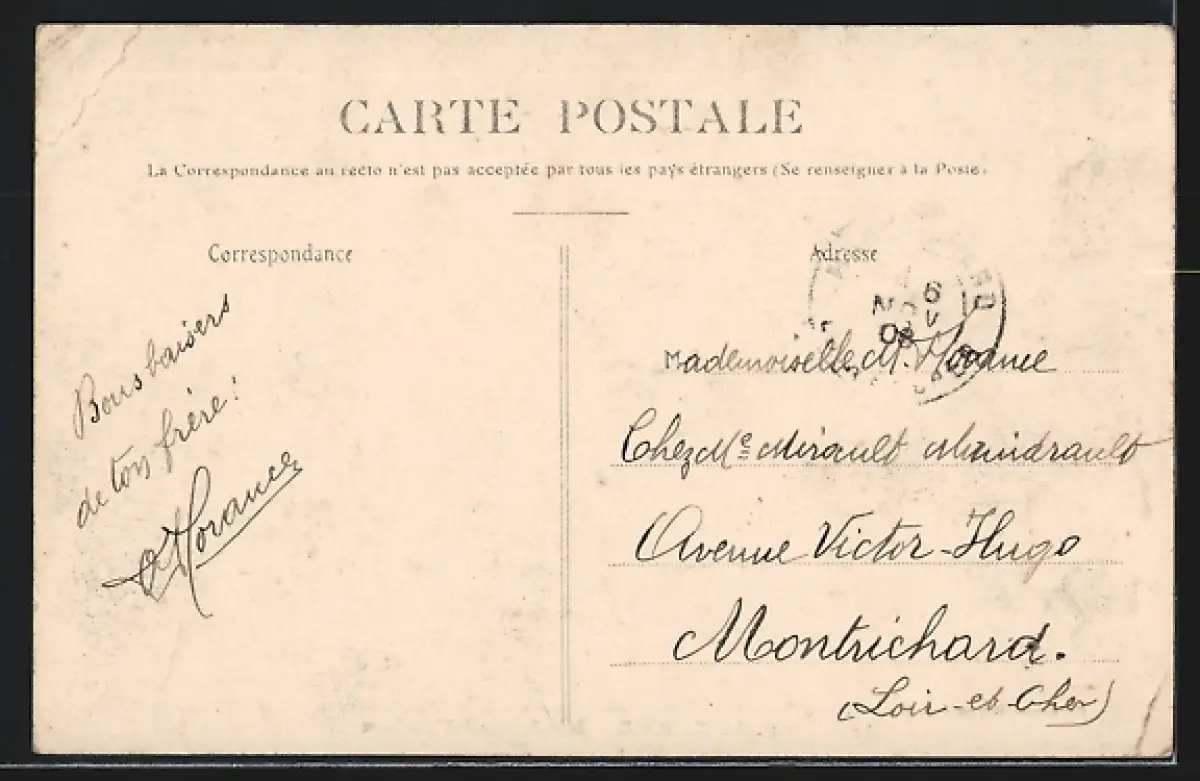 CARTE POSTALE
La Correspondance au recto n'est pas acceptée par tous les pays étrangers (Se renseigner à la Poste)
Correspondance
Bons baisers
de ton frère!
Morance
Adresse
6
NOV
08
Mademoiselle M. Morance
Chez Me Mirault
Avenue Victor-Hugo
Montrichard.
(Loir-et-Cher)